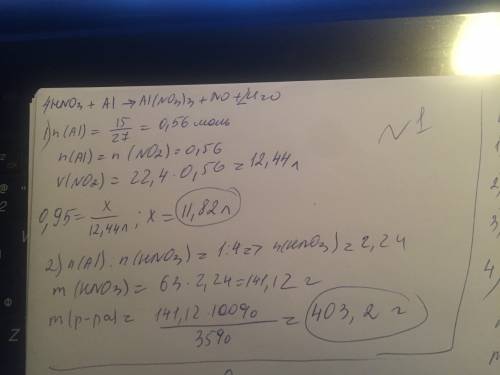 4HNO3 + Al → Al(NO3)3 + NO + 2H2O
N1
1) n(Al) = 15/27 = 0,56 моль
n(Al) = n(NO2) = 0,56
V(NO2) = 22,4 · 0,56 = 12,44 л
0,95 = x/12,44л ; x = 11,82 л
2) n(Al) : n(HNO3) = 1:4 => n(HNO3) = 2,24
m(HNO3) = 63 · 2,24 = 141,12 г
m(р-ра) = 141,12 · 100%/35% = 403,2 г